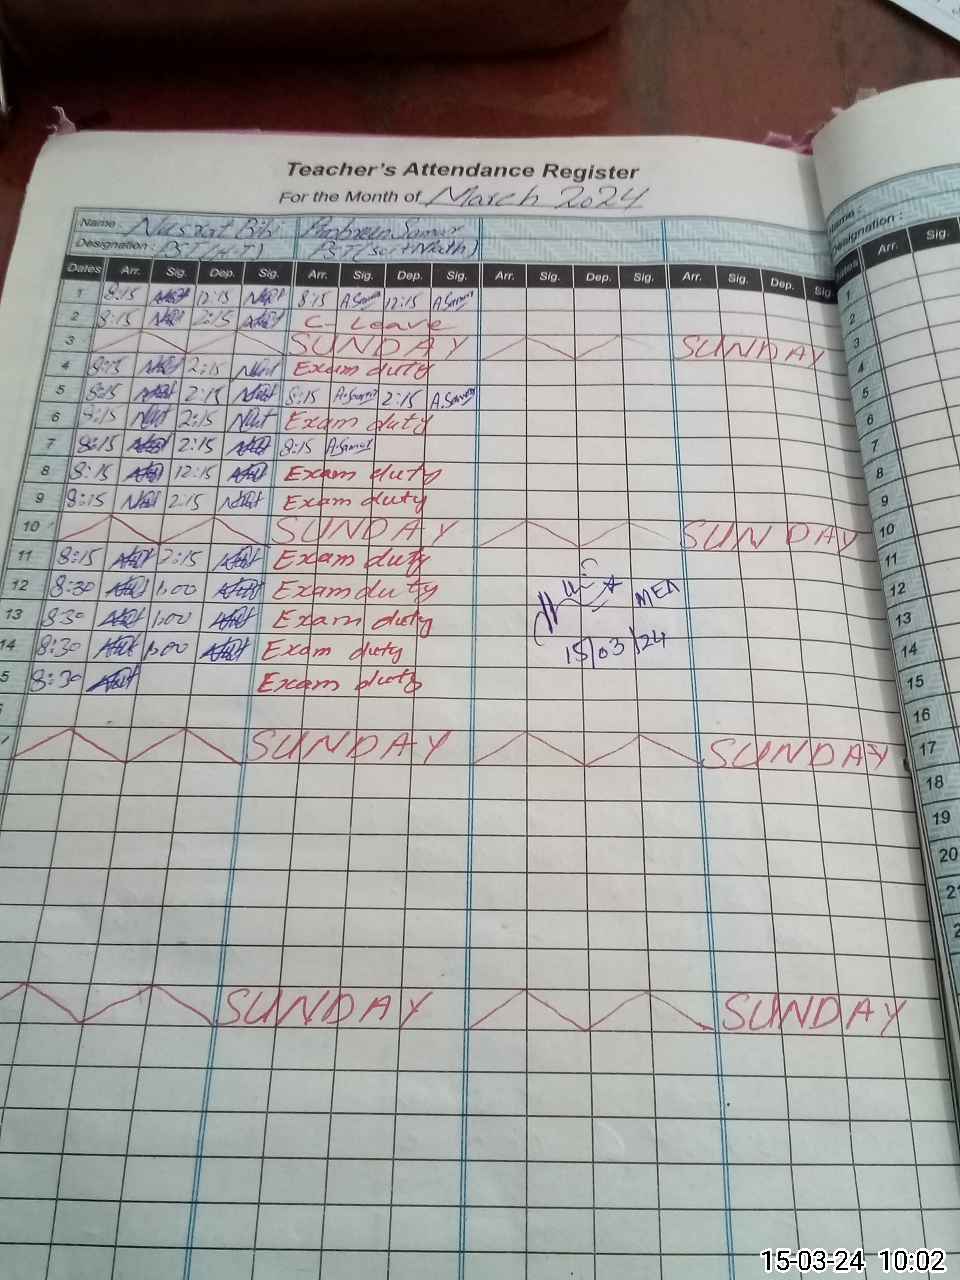 Teacher's Attendance Register
For the Month of March 2024
Name : Nusrat Bibi Ambreen Samar Name :
Designation : PST (H-T) PST (Sci+Math) Designation :
Dates Arr. Sig. Dep. Sig. Arr. Sig. Dep. Sig. Arr. Sig. Dep. Sig. Arr. Sig. Dep. Sig Dates Arr. Sig.
1 8:15 12:15 8:15 A.Samar 12:15 A.Samar 1
2 8:15 2:15 C- Leave 2
3 SUNDAY SUNDAY 3
4 8:15 2:15 Exam duty 4
5 8:15 2:15 8:15 A.Samar 2:15 A.Samar 5
6 8:15 2:15 Exam duty 6
7 8:15 2:15 8:15 A.Samar 7
8 8:15 12:15 Exam duty 8
9 8:15 2:15 Exam duty 9
10 SUNDAY SUNDAY 10
11 8:15 2:15 Exam duty 11
12 8:30 1:00 Exam duty 12
MEA
13 8:30 1:00 Exam duty 13
14 8:30 1:00 Exam duty 14
15/03/24
5 8:30 Exam duty 15
16
SUNDAY SUNDAY 17
18
19
20
21
2
SUNDAY SUNDAY
15-03-24 10:02